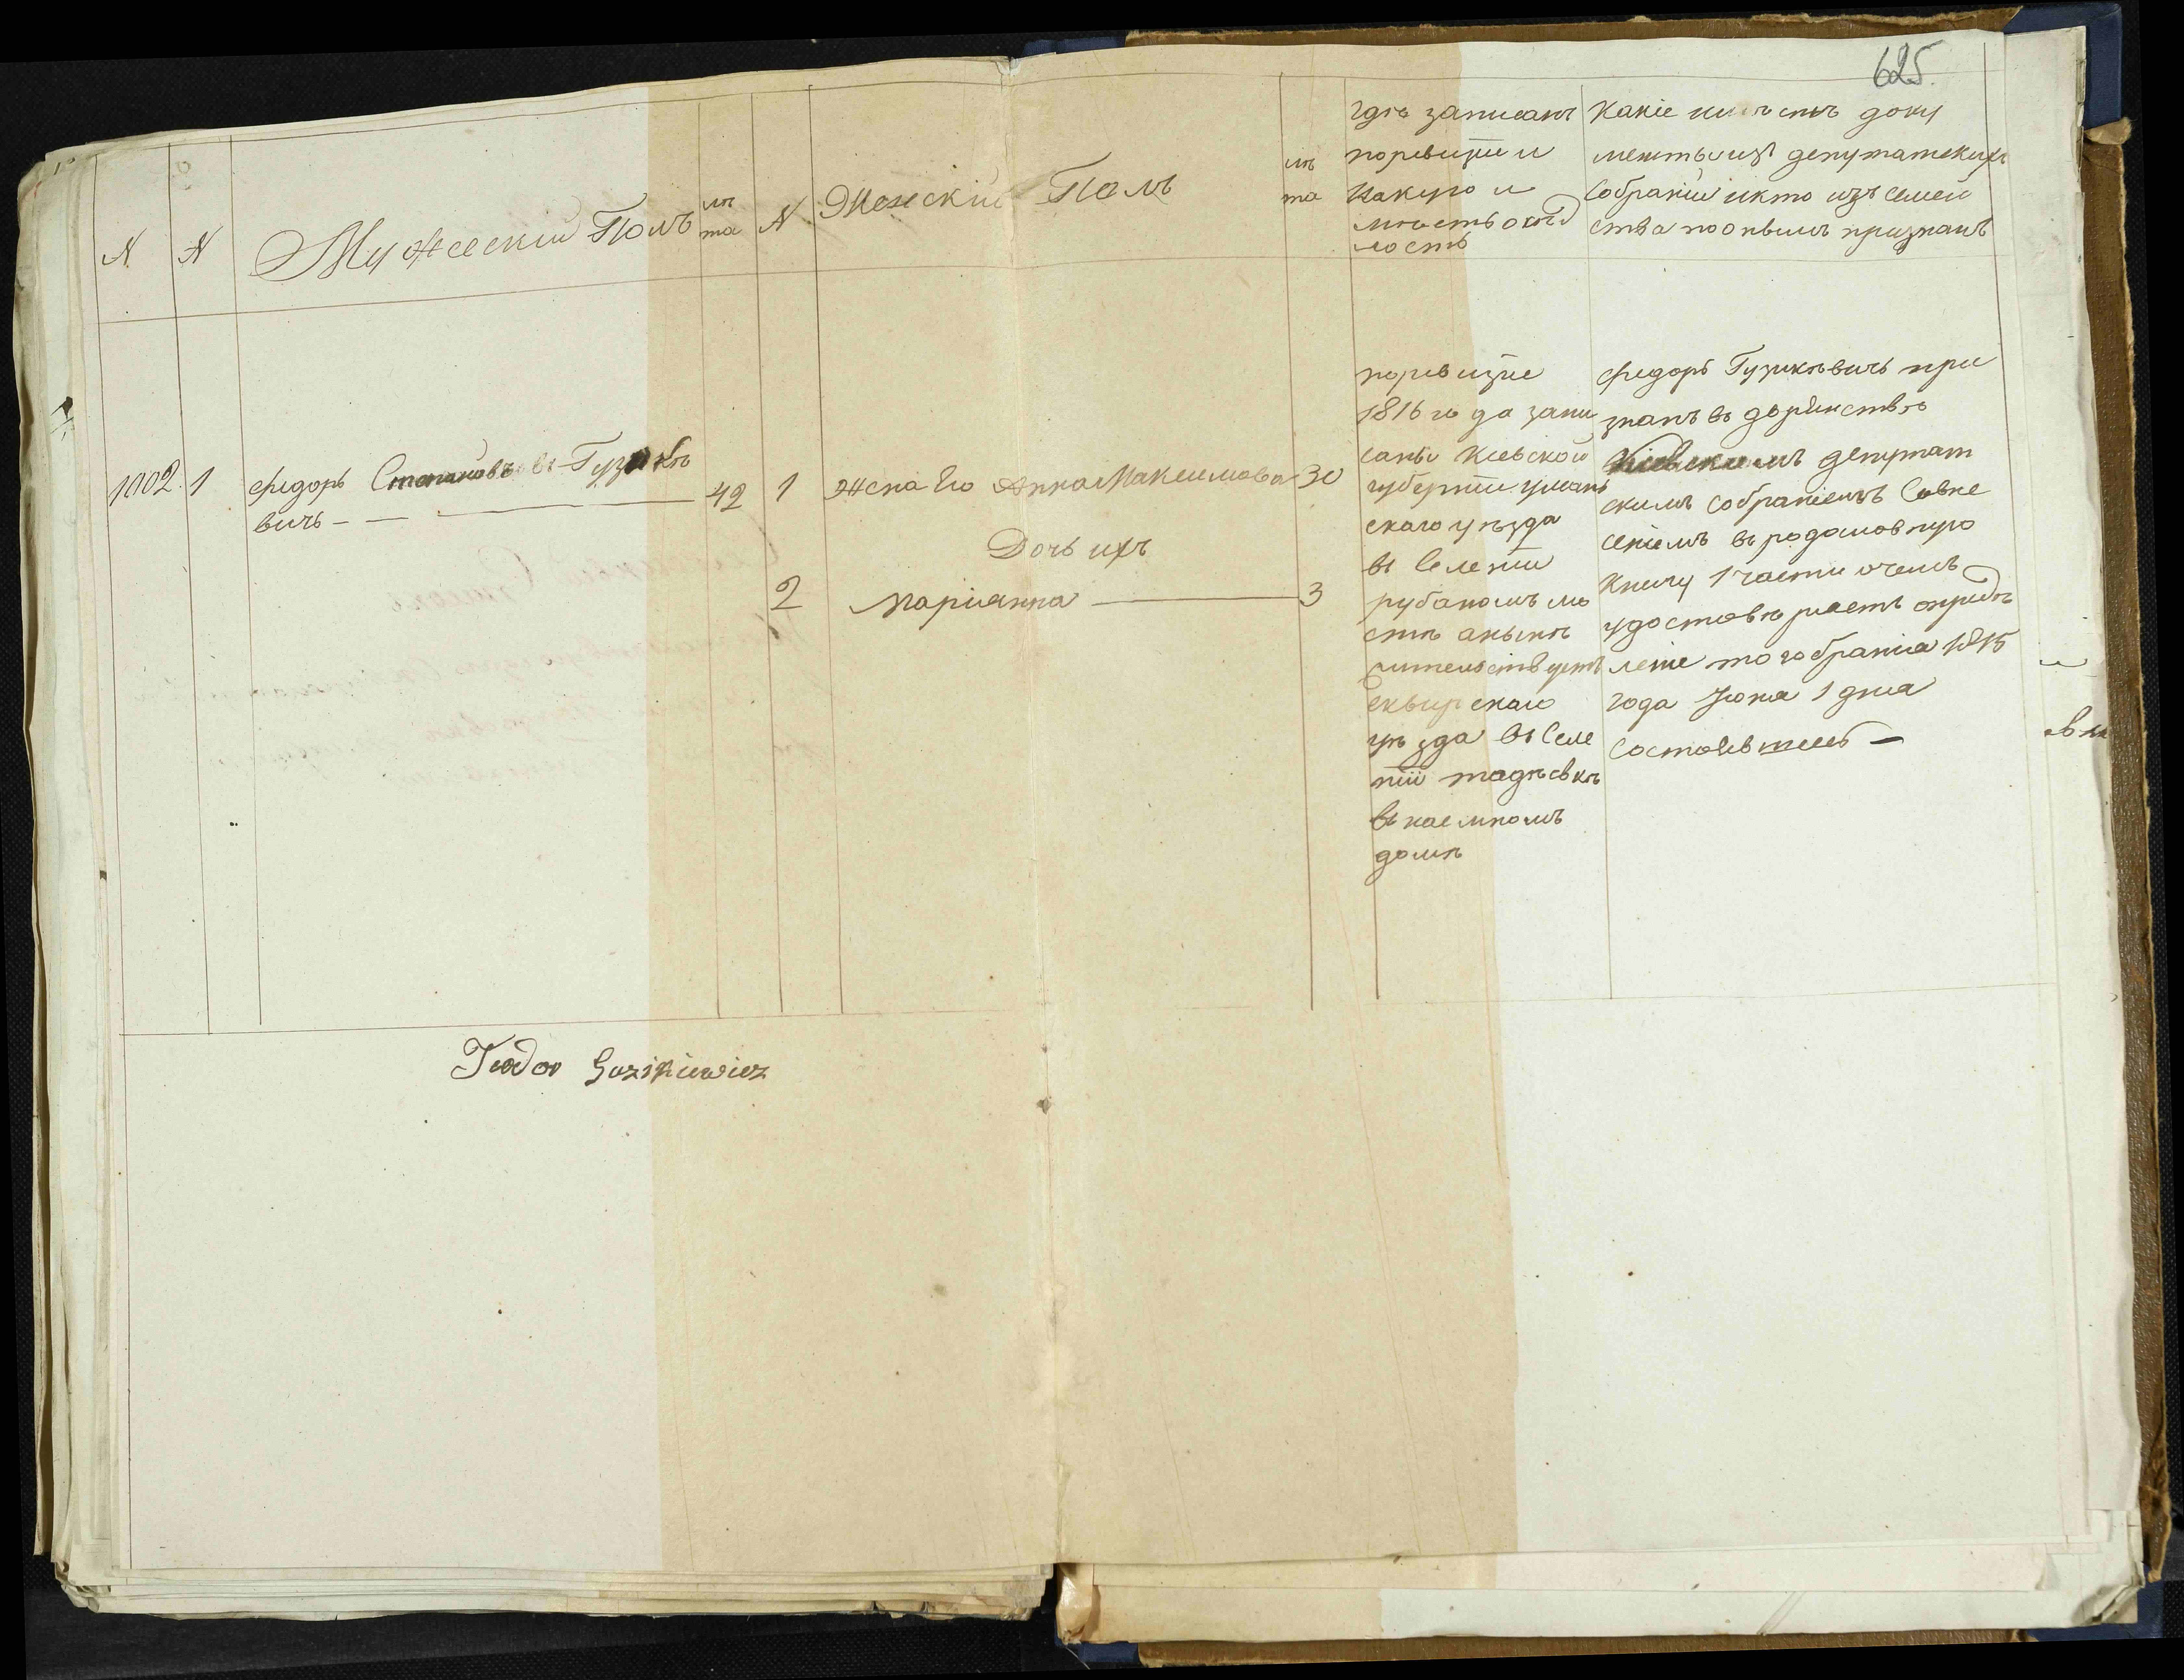 625.
N
N
Мужескій Полъ
лѣ
та
N
Женскій Полъ
лѣ
та
гдѣ записанъ
поревизіи и
какую и
мѣетъ осѣд
лость
Какіе имѣетъ доку
менты изъ депутатскихъ
собраній и кто изъ семей
ства поонымъ признанъ
1002
1
Федоръ Степановъ Гузикѣ
вичъ
42
1
жена Его Анна Максимова
30
Дочь ихъ
2
Маріанна
3
поревизіе
1816 года запи
саны Кіевской
губерніи уман
скаго уѣзда
въ Селеніи
рубаномъ мо
стѣ а нынѣ
жительствуетъ
сквирскаго
уѣзда въ Селе
ніи тадѣевкѣ
въ наемномъ
домѣ
Федоръ Гузикѣвичъ при
знанъ въ дврянствѣ
Кіевскимъ депутат
скимъ собраніемъ Совне
сеніемъ въ родословную
Книгу 1 части очемъ
удостовѣряетъ опредѣ
леніе того собранія 1815
года Июня 1 дня
состоявшееся
Teodor Guzikiewicz